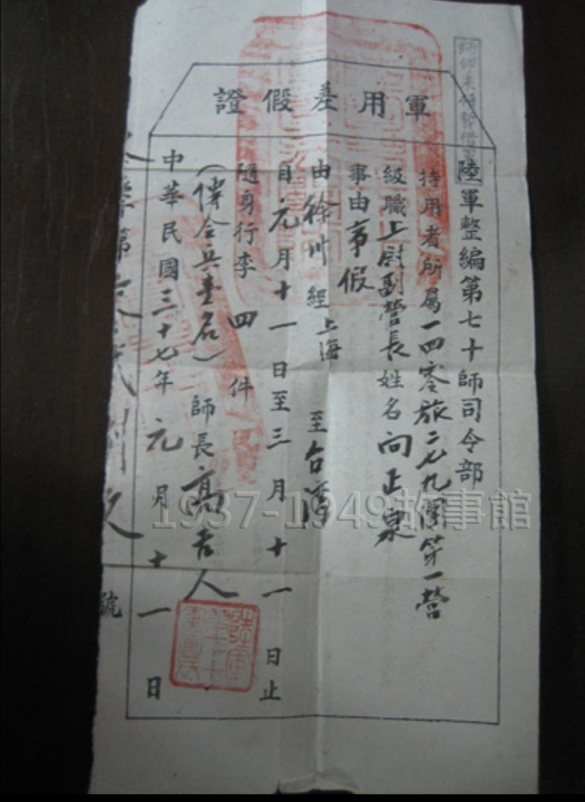 軍用差假證
陸軍整編第七十師司令部
持用者所屬一四零旅二七九團第一營
級職上尉副營長姓名向正東
事由事假
由徐州經上海至台灣
自元月十一日至三月十一日止
隨身行李四件
師長高吉人
中華民國三十七年元月十一日
第
號
1937-1949故事館